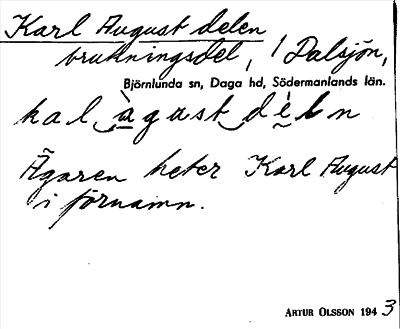 Karl August delen
brukningsdel, i Dalsjön,
Björnlunda sn, Daga hd, Södermanlands län.
kal àgast déln
Ägaren heter Karl August
i förnamn.
ARTUR OLSSON 1943